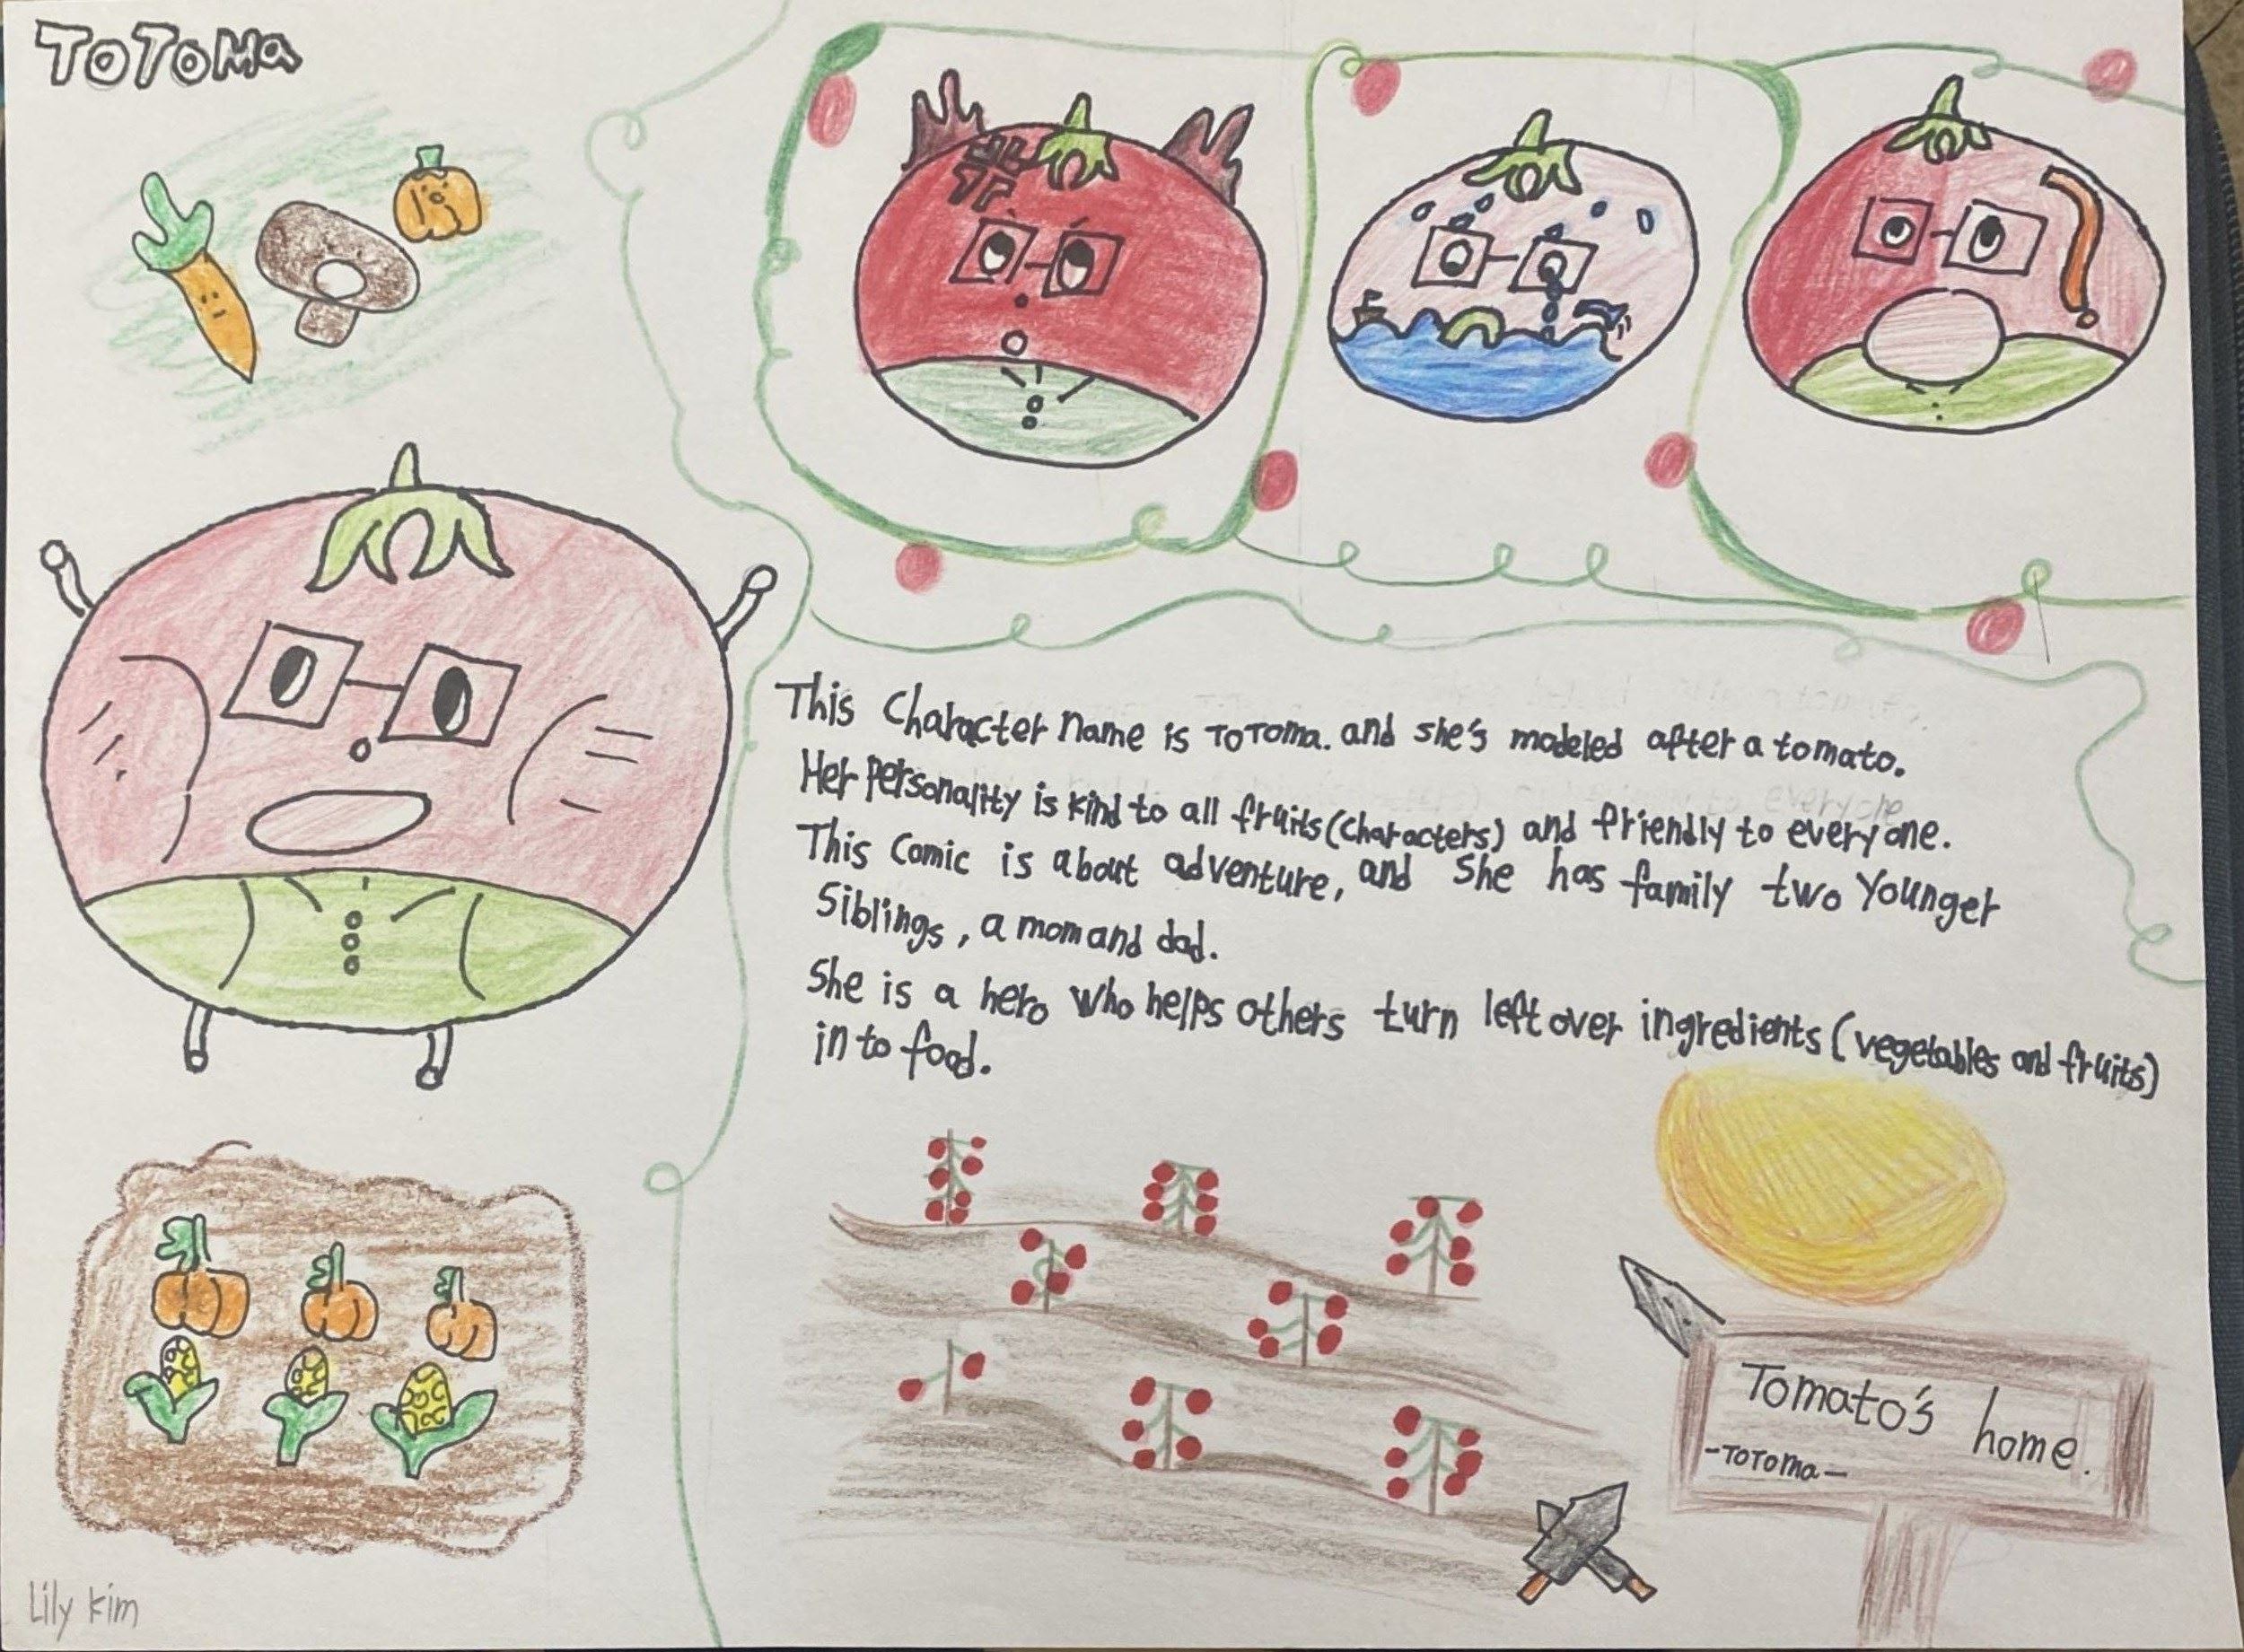 ToToMa
This Character Name is ToToma. and she's modeled after a tomato.
Her personality is kind to all fruits (characters) and friendly to everyone.
This Comic is about adventure, and She has family two Younger
Siblings, a mom and dad.
She is a hero who helps others turn left over ingredients (vegetables and fruits)
in to food.
Tomato's home.
-ToToma-
Lily kim